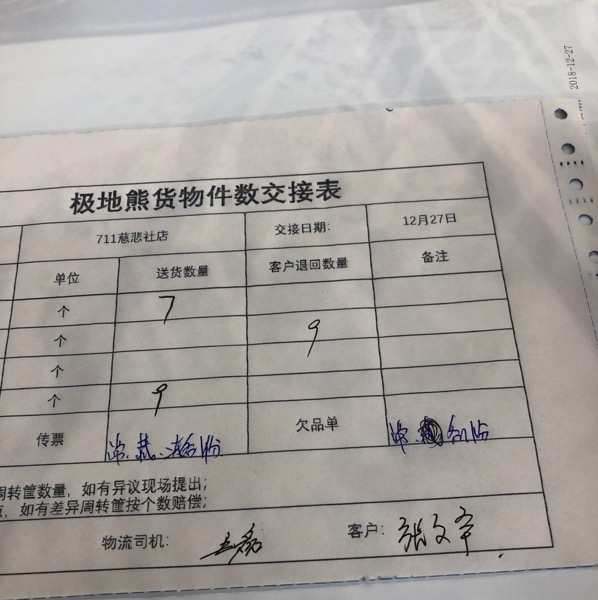 2018-12-27
极地熊货物件数交接表
711慈悲社店 交接日期: 12月27日
单位 送货数量 客户退回数量 备注
个 7
个 9
个
个 9
传票 欠品单
周转筐数量，如有异议现场提出;
，如有差异周转筐按个数赔偿;
物流司机: 客户: